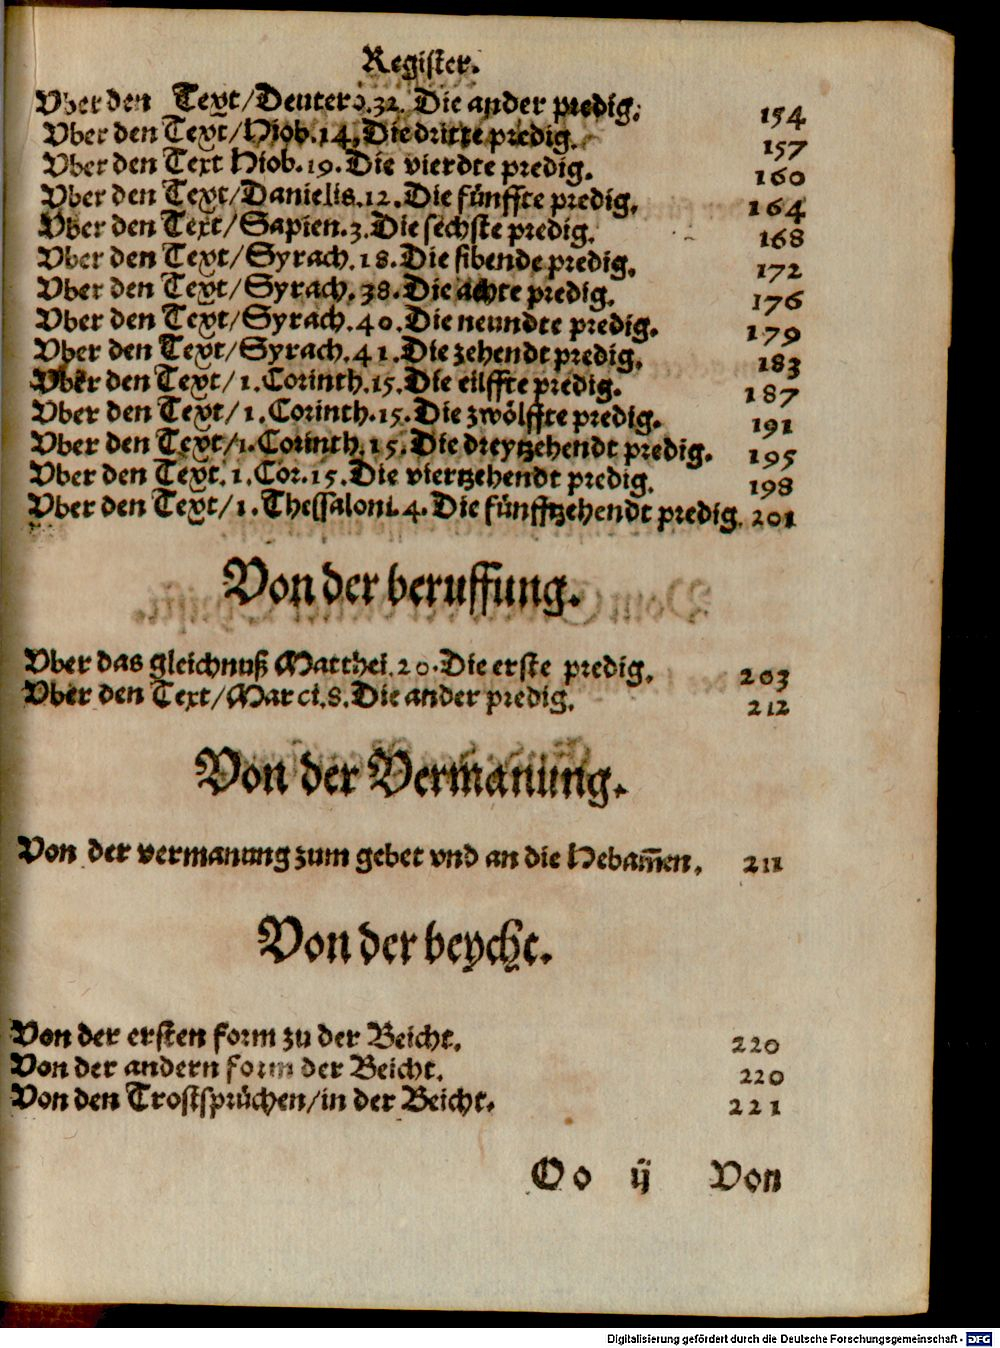 Register.
Vber den Text/Deutero.32. Die ander predig. 154
Vber den Text/Hiob.14. Die dritte predig. 157
Vber den Text Hiob.19. Die vierdte predig. 160
Vber den Text/Danielis.12. Die fünffte predig. 164
Vber den Text/Sapien.3. Die sechste predig. 168
Vber den Text/Syrach.18. Die sibende predig. 172
Vber den Text/Syrach.38. Die achte predig. 176
Vber den Text/Syrach.40. Die neundte predig. 179
Vber den Text/Syrach.41. Die zehendt predig. 183
Vber den Text/1.Corinth.15. Die eilffte predig. 187
Vber den Text/1.Corinth.15. Die zwölffte predig. 191
Vber den Text/1.Corinth.15. Die dreytzehendt predig. 195
Vber den Text.1.Cor.15. Die viertzehendt predig. 198
Vber den Text/1.Thessaloni.4. Die fünfftzehendt predig. 201
Von der beruffung.
Vber das gleichnuß Matthei.20. Die erste predig. 203
Vber den Text/Marci.8. Die ander predig. 212
Von der Vermanung.
Von der vermanung zum gebet vnd an die Hebam̄en. 211
Von der beycht.
Von der ersten form zu der Beicht. 220
Von der andern form der Beicht. 220
Von den Trostsprüchen/in der Beicht. 221
Oo ij Von
Digitalisierung gefördert durch die Deutsche Forschungsgemeinschaft - DFG